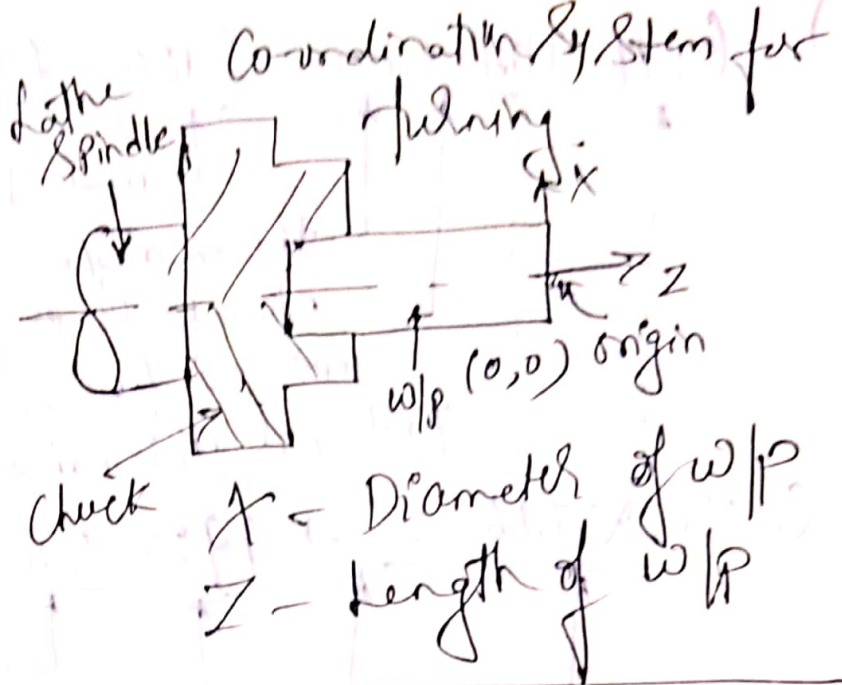 Co-ordination System for
turning
Lathe
Spindle
X
Z
origin
(0,0)
w/p
Chuck
X - Diameter of w/p
Z - Length of w/p